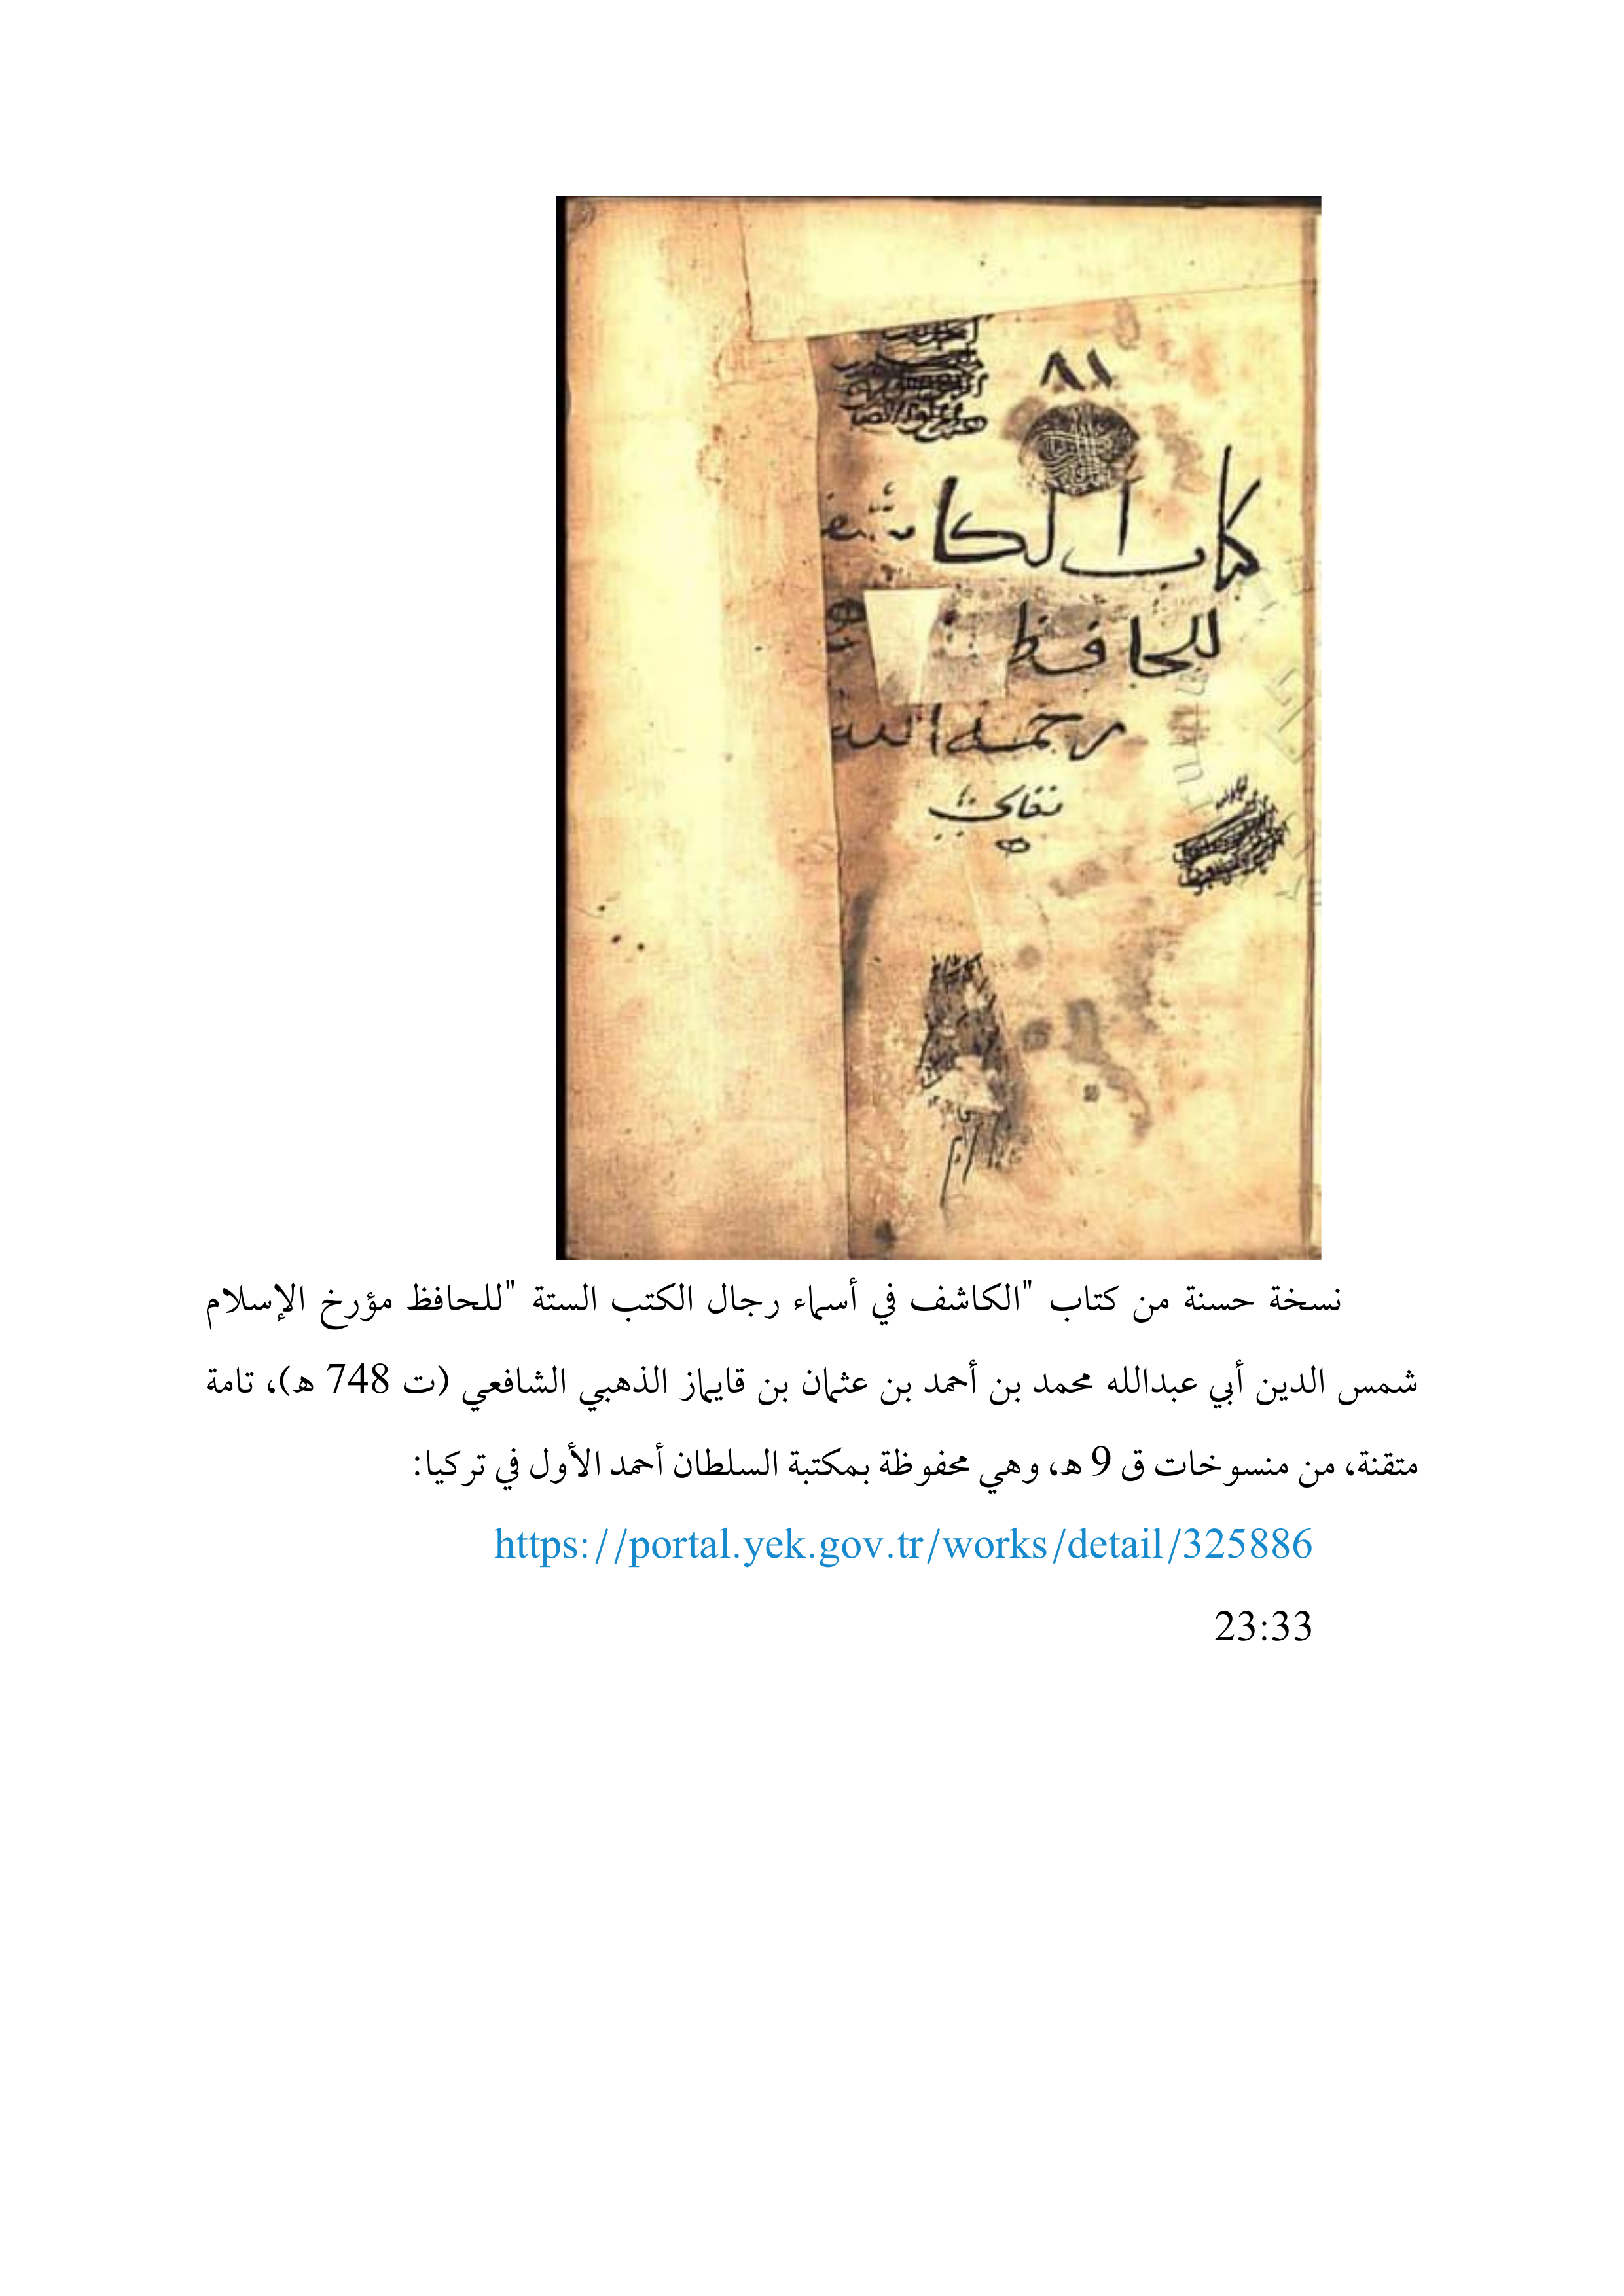 ٨١
كتاب الكاشف
للحافظ
رحمه الله
تعالى
نسخة حسنة من كتاب "الكاشف في أسماء رجال الكتب الستة "للحافظ مؤرخ الإسلام
شمس الدين أبي عبدالله محمد بن أحمد بن عثمان بن قايماز الذهبي الشافعي (ت 748 ه)، تامة
متقنة، من منسوخات ق 9 ه، وهي محفوظة بمكتبة السلطان أحمد الأول في تركيا:
https://portal.yek.gov.tr/works/detail/325886
23:33